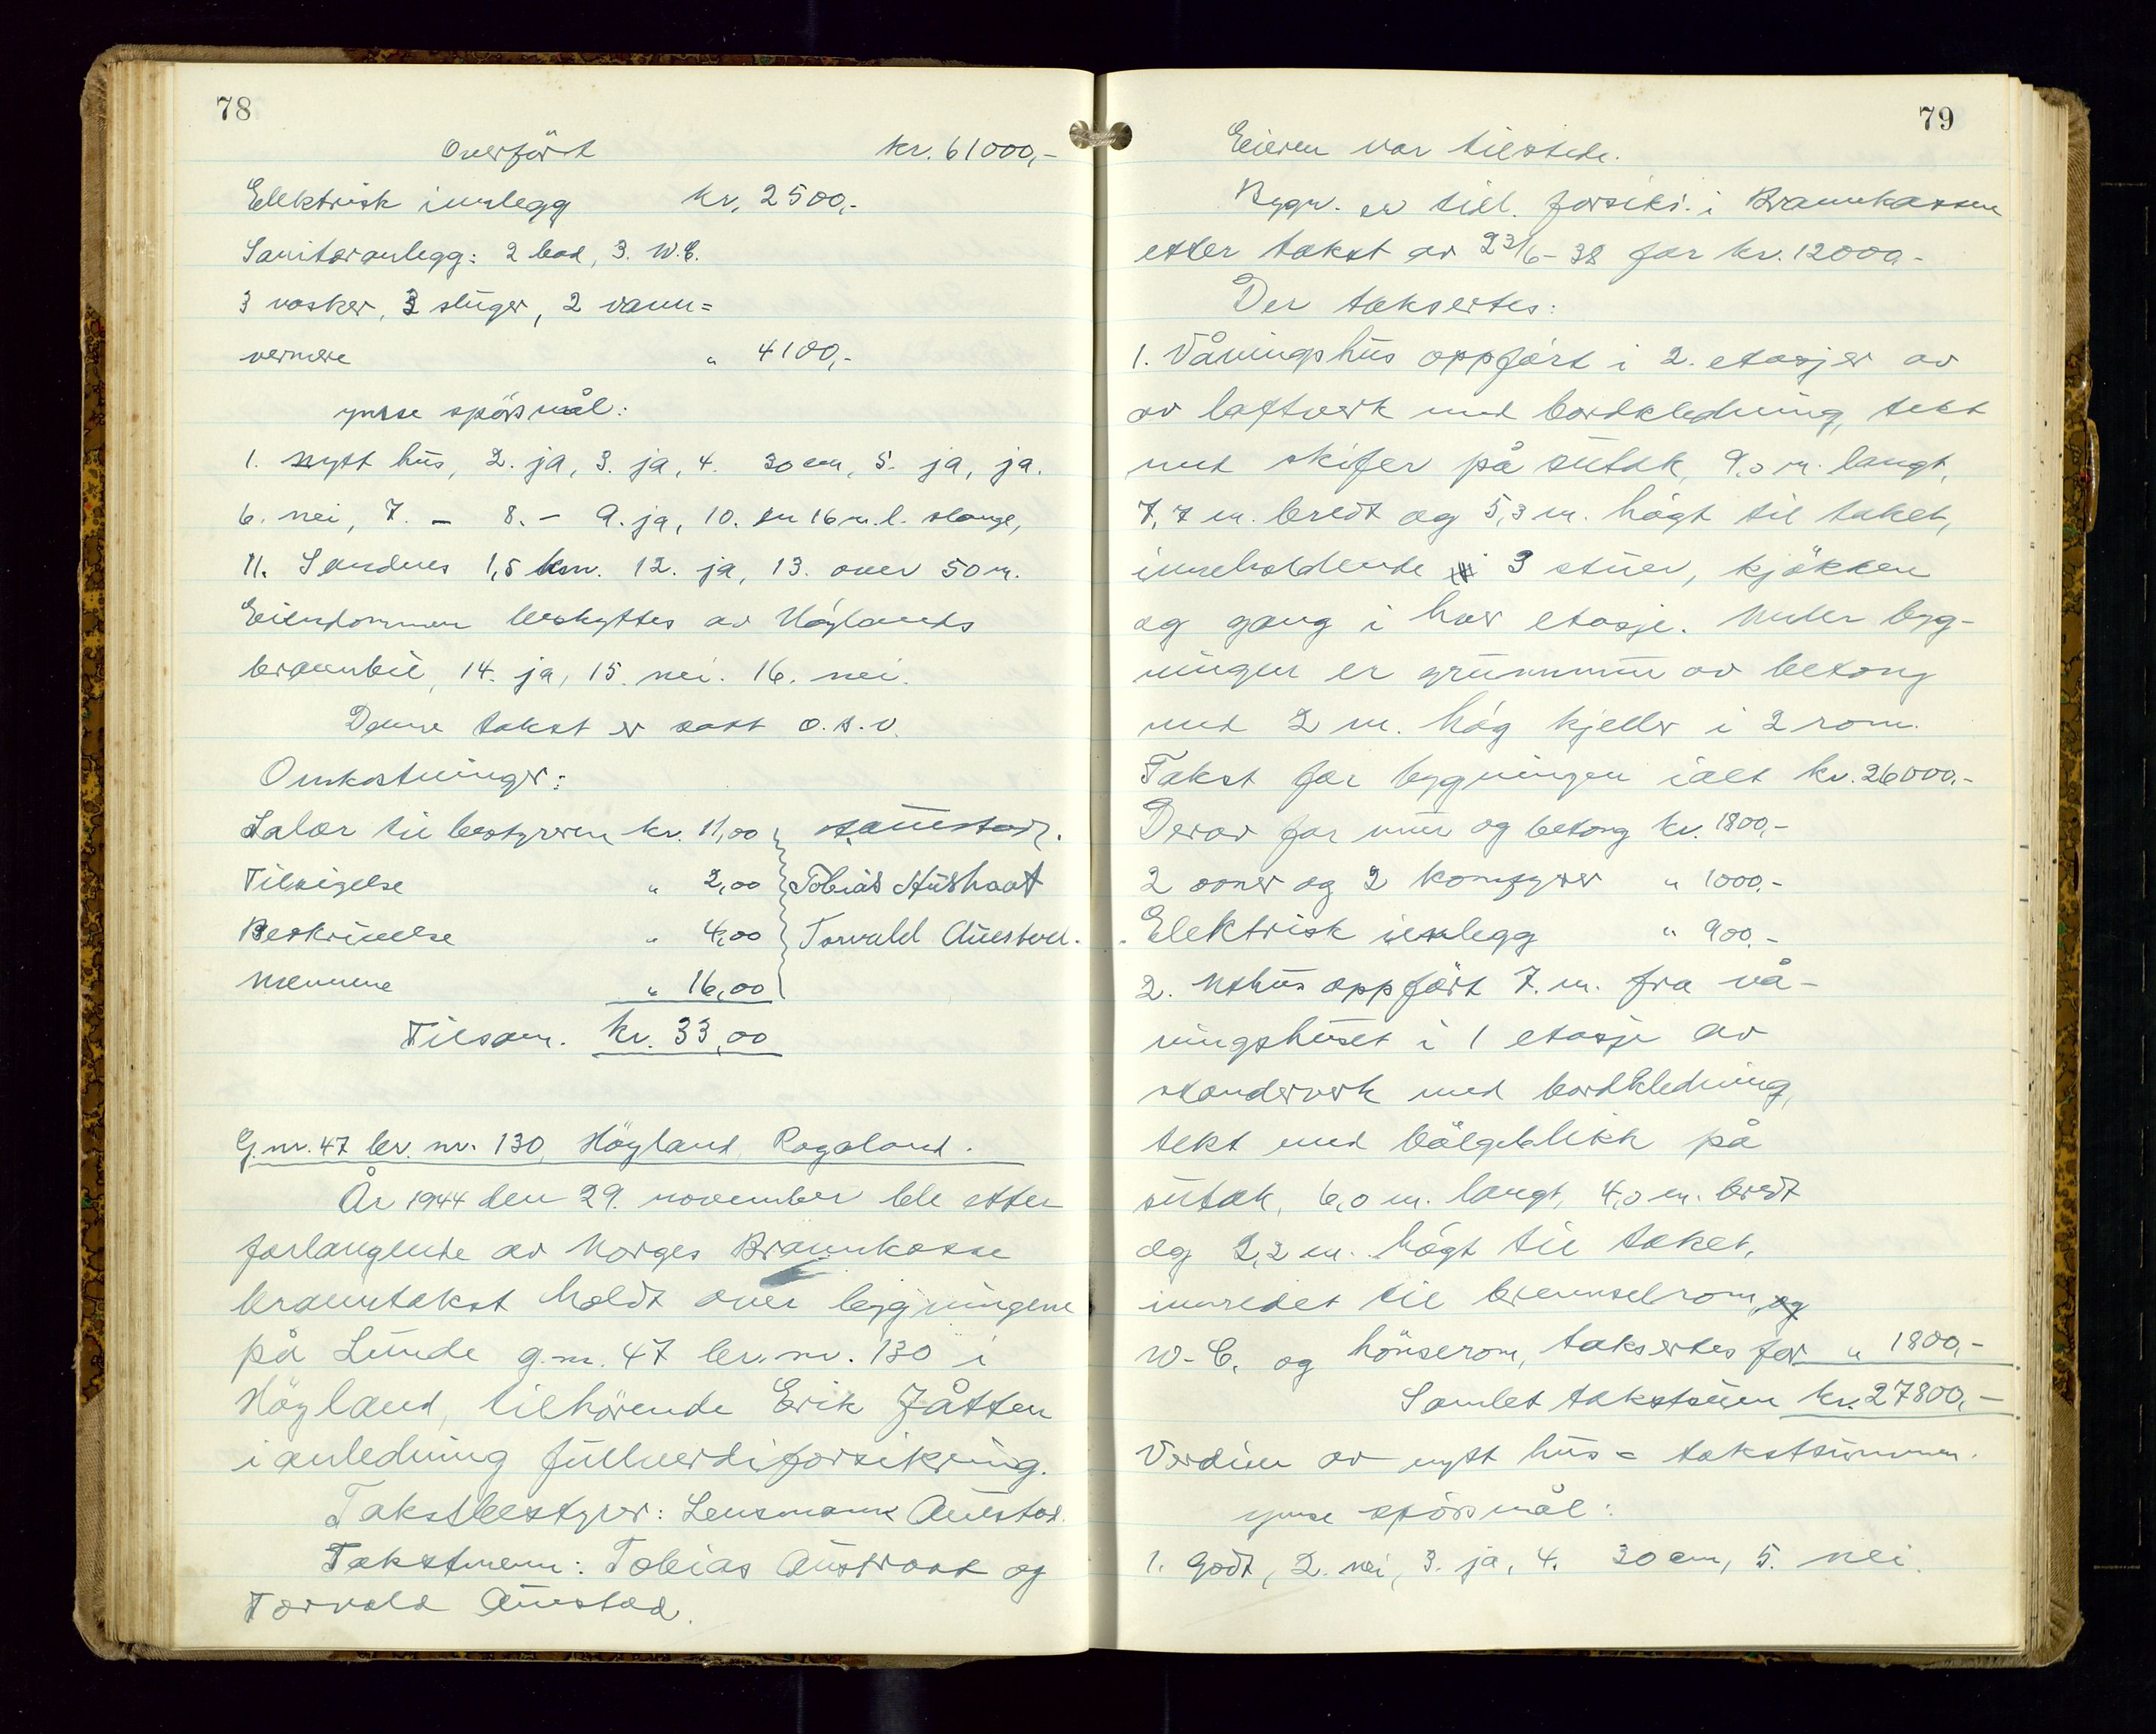 78
Overført kr. 61000,-
Elektrisk innlegg kr. 2500,-
Sanitæranlegg: 2 bad, 3. W.C.
3 vasker, 3 sluger, 2 vann=
vermere " 4100,-
ymse spörsmål:
1. nytt hus, 2. ja, 3. ja, 4. 30 cm, 5. ja, ja.
6. nei, 7. - 8. - 9. ja, 10. en 16 m. l. slange,
11. Sandnes 1,5 km. 12. ja, 13. over 50 m.
Eiendommen beskyttes av Höylands
brannbil, 14. ja, 15. nei. 16. nei.
Denne takst er satt o.s.v.
Omkostninger:
Salær til bestyreren kr. 11,00
Tilsigelse " 2,00 Tobias Austraat
Beskrivelse " 4,00 Torvald Auestad.
Mennene " 16,00
Tilsam. kr. 33,00
G.nr. 47 br. nr. 130, Höyland, Rogaland.
År 1944 den 29. november ble etter
forlangende av Norges Brannkasse
branntakst holdt over bygningene
på Lunde g.nr. 47 br. nr. 130 i
Höyland, tilhörende Erik Jåtten
i anledning fullverdiforsikring.
Takstbestyrer: Lensmann Auestad.
Takstmenn: Tobias Austraat og
Torvald Auestad.
79
Eieren var tilstede.
Bygn. er till. forsikr. i Brannkassen
etter takst av 23/6-38 for kr. 12000.-
Der taksertes:
1. Våningshus oppfört i 2. etasjer av
av laftverk med bordkledning, tekt
med skifer på sutak, 9,0 m. langt,
7,7 m. bredt og 5,3 m. högt til taket,
inneholdende 3 stuer, kjökken
og gang i hver etasje. Under byg-
ningen er grunnmur av betong
med 2 m. hög kjeller i 2 rom.
Takst for bygningen ialt kr. 26000.-
Derav for mur og betong kr. 1800,-
2 ovner og 2 komfyrer " 1000.-
Elektrisk innlegg " 900.-
2. Uthus oppfört 7. m. fra vå-
ningshuset i 1 etasje av
standerverk med bordkledning,
tekt med bölgeblikk på
sutak, 6,0 m. langt, 4,0 m. bredt
og 2,2 m. högt til taket,
innredet til brennselrom, og
W-C. og hönserom, taksertes for " 1800,-
Samlet takstsum kr. 27800,-
Verdien av nytt hus = takstsummen.
ymse spörsmål:
1. Godt, 2. nei, 3. ja, 4. 30 cm, 5. nei.